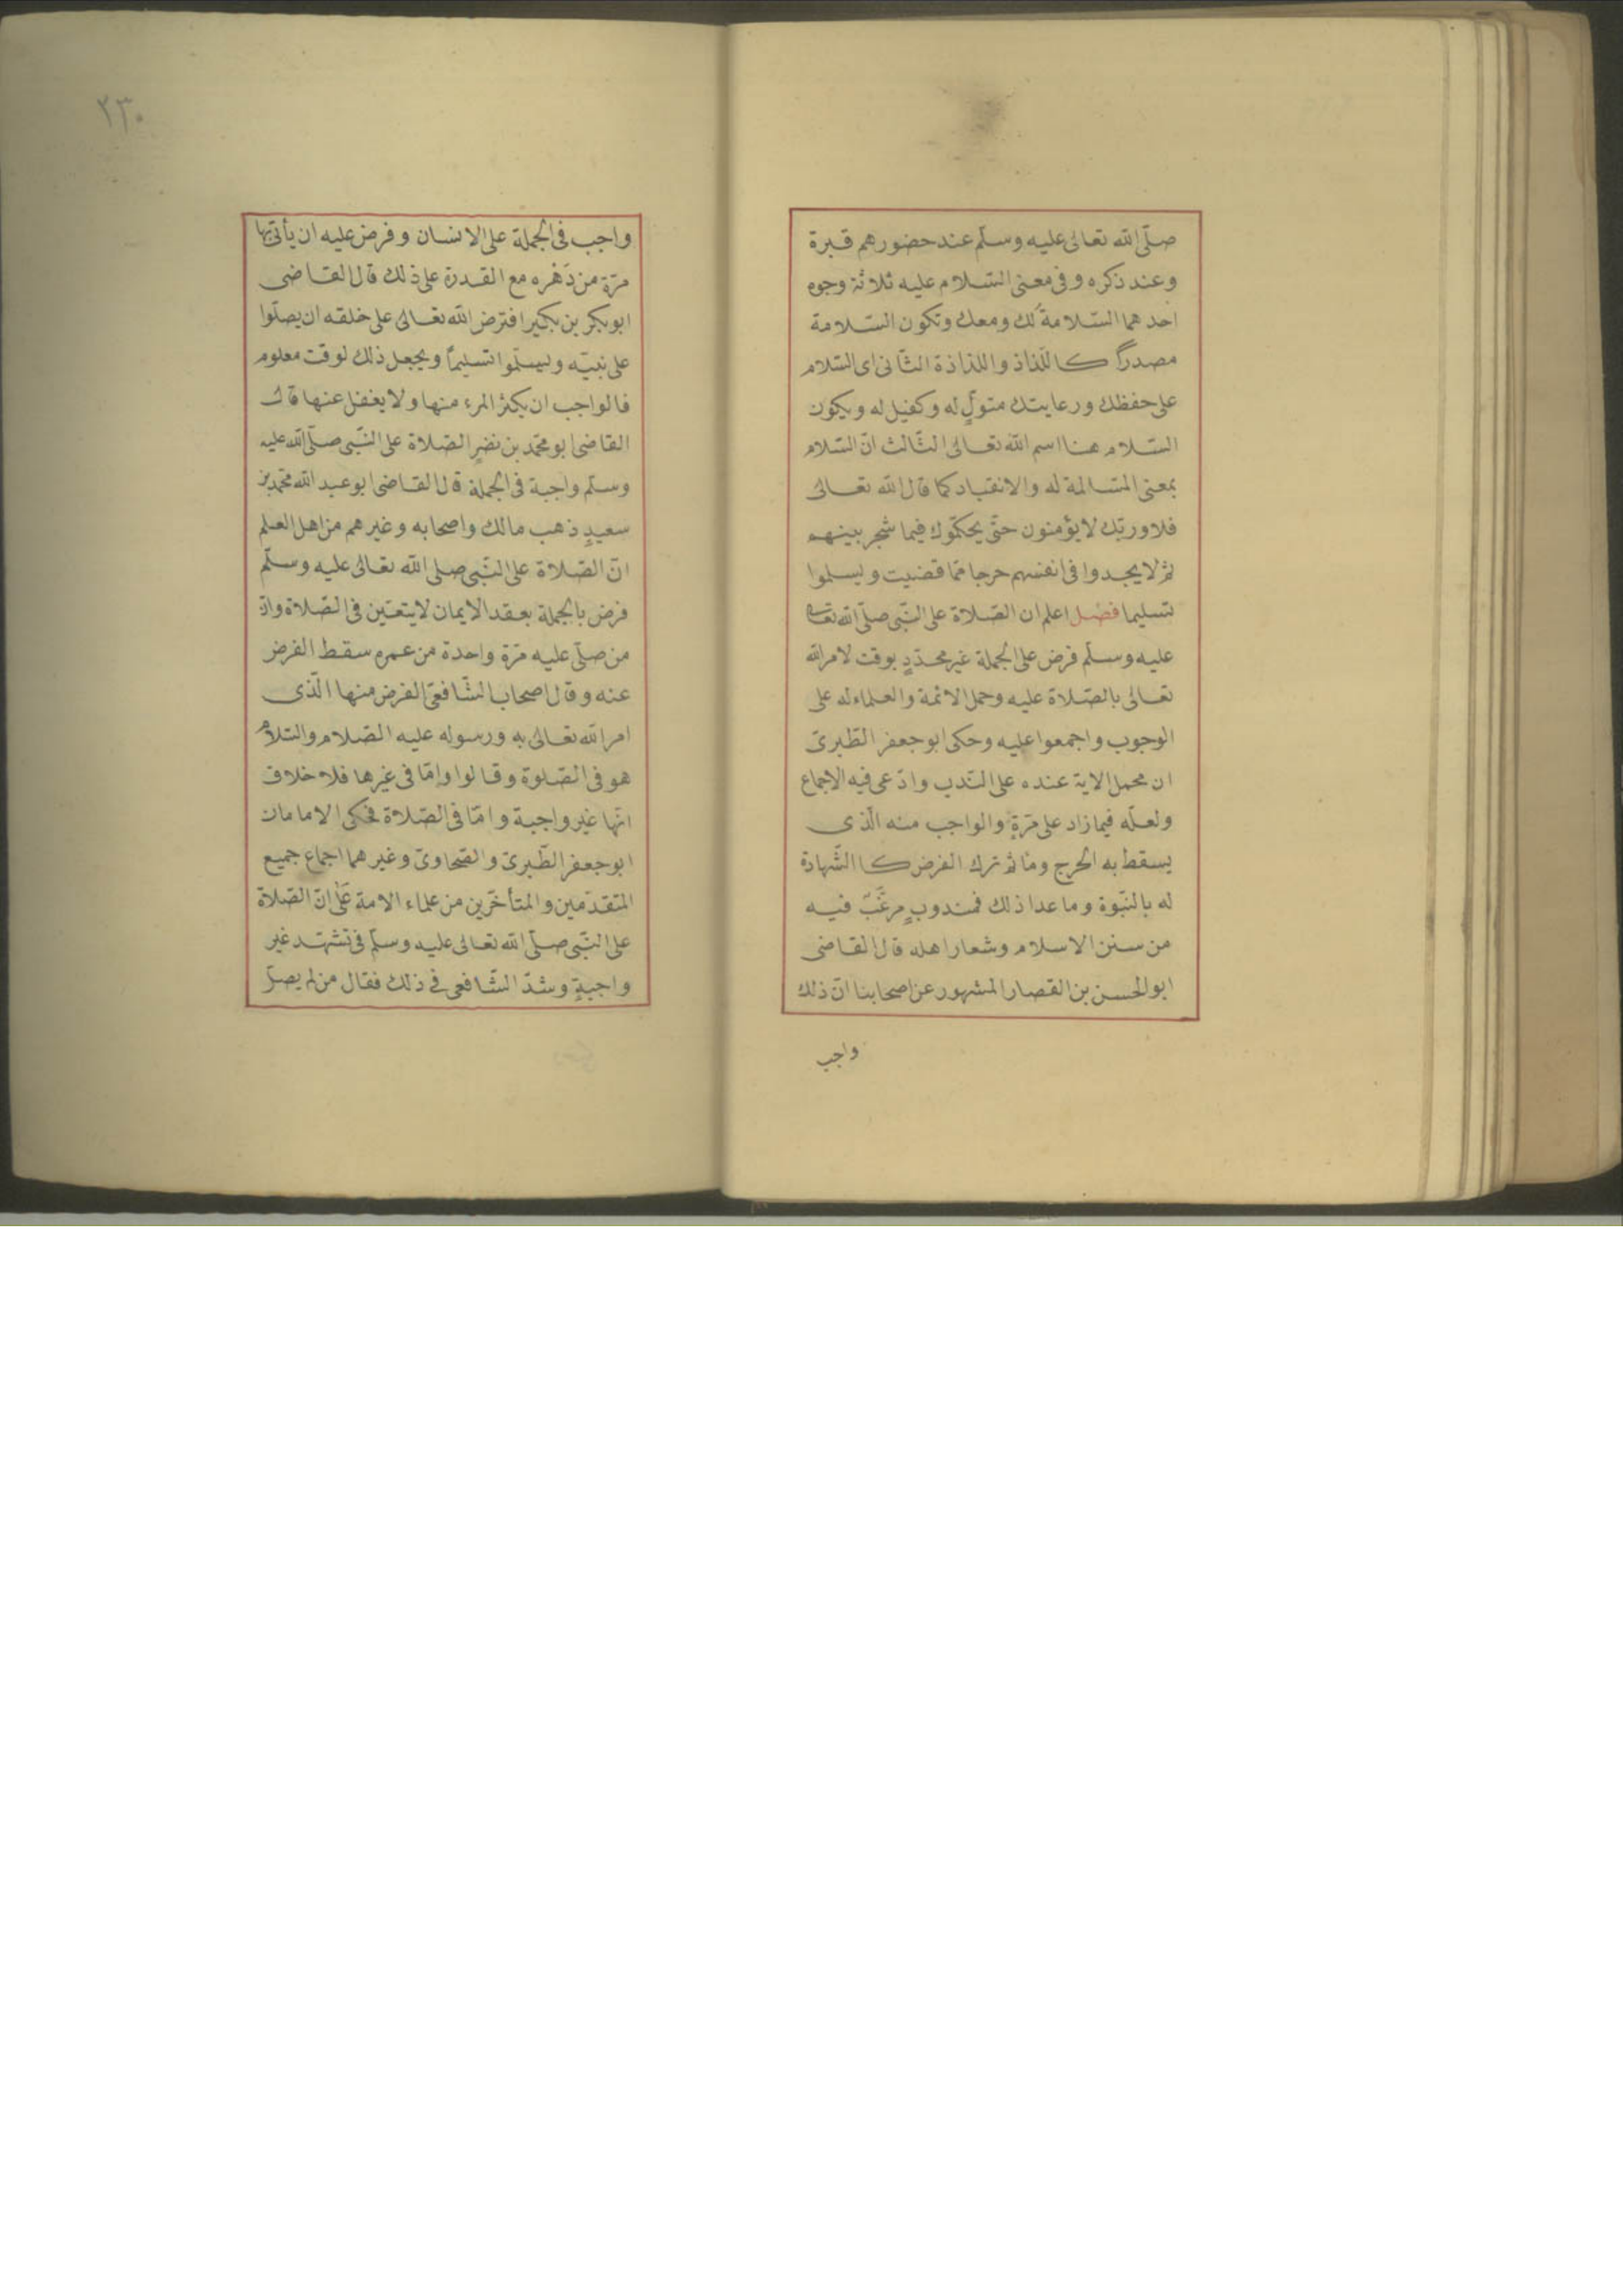 صلّى الله تعالى عليه وسلّم عند حضورهم قبرة
وعند ذكره وفى معنى السّلام عليه ثلاثة وجوه
احدهما السّلامة لك ومعك وتكون السّلامة
مصدراً كاللّذاذ واللذاذة الثّانى اى السّلام
على حفظك ورعايتك متولٍّ له وكفيل له ويكون
السّلام هنا اسم الله تعالى الثّالث انّ السّلام
بمعنى المسالمة له والانقياد كما قال الله تعالى
فلا وربّك لا يؤمنون حتّى يحكّموك فيما شجر بينهم
ثمّ لا يجدوا فى انفسهم حرجا ممّا قضيت ويسلموا
تسليما فصل اعلم ان الصّلاة على النّبى صلّى الله تعالى
عليه وسلّم فرض على الجملة غير محدّدٍ بوقت لامر الله
تعالى بالصّلاة عليه وحمل الائمة والعلماء له على
الوجوب واجمعوا عليه وحكى ابو جعفر الطّبرىّ
ان محمل الاية عنده على النّدب وادّعى فيه الاجماع
ولعلّه فيما زاد على مرّةٍ والواجب منه الّذى
يسقط به الحرج ومأثم ترك الفرض كالشّهادة
له بالنّبوة وما عدا ذلك فمندوبٍ مرغّبّ فيه
من سنن الاسلام وشعار اهله قال القاضى
ابو الحسن بن القصار المشهور عن اصحابنا انّ ذلك
واجب
٢٣٠
واجب فى الجملة على الانسان وفرض عليه ان يأتى بها
مرّة من دَهْره مع القدرة على ذلك قال القاضى
ابو بكر بن بكير افترض الله تعالى على خلقه ان يصلّوا
على نبيّه وليسلّموا تسليماً ويجعل ذلك لوقت معلوم
فالواجب ان يكثر المرء منها ولا يغفل عنها قال
القاضى ابو محمّد بن نضرٍ الصّلاة على النّبى صلّى الله عليه
وسلّم واجبة فى الجملة قال القاضى ابو عبد الله محمّد بن
سعيدٍ ذهب مالك واصحابه وغيرهم من اهل العلم
انّ الصّلاة على النّبى صلى الله تعالى عليه وسلّم
فرض بالجملة بعقد الايمان لا يتعيّن فى الصّلاة وانّ
من صلّى عليه مرّة واحدة من عمره سقط الفرض
عنه وقال اصحاب الشّافعىّ الفرض منها الّذى
امر الله تعالى به ورسوله عليه الصّلام والسّلام
هو فى الصّلوة وقالوا وامّا فى غيرها فلا خلاف
انّها غير واجبة وامّا فى الصّلاة فحكى الامامان
ابو جعفر الطّبرىّ والصّحاوىّ وغيرهما اجماع جميع
المتقدّمين والمتأخّرين من علماء الامة عَلَى انّ الصّلاة
على النّبى صلّى الله تعالى عليه وسلّم فى تشهّد غير
واجبةٍ وشدّ الشّافعى فى ذلك فقال من لم يصلّ